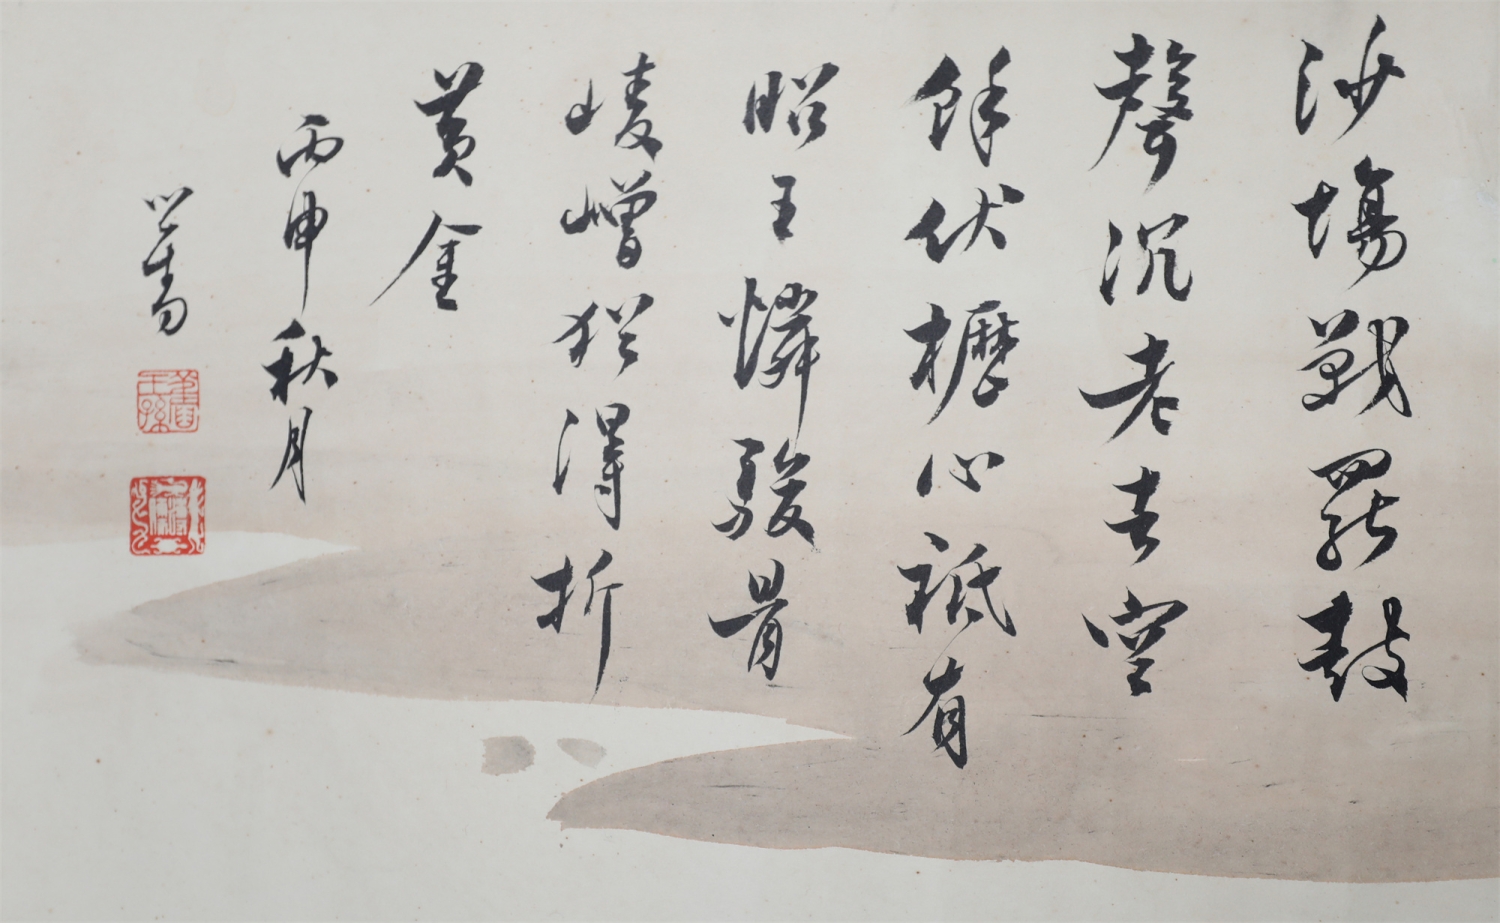 沙場戰罷鼓
聲沉老去空
餘伏櫪心祇有
昭王憐駿骨
崚嶒猶得折
黃金
丙申秋月
心畬
舊王孫